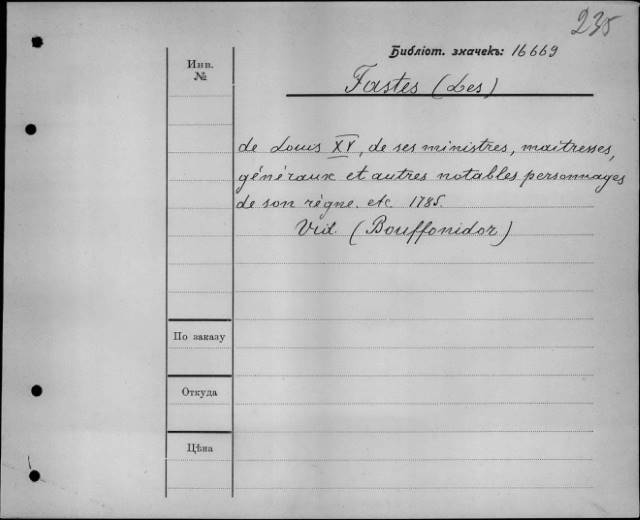 235
Библіот. значекъ: 16669
Инв.
№
Fastes (Les)
de Louis XV, de ses ministres, maitresses,
généraux et autres notables personnages
de son règne. etc. 1785.
Vid. (Bouffonidor)
По заказу
Откуда
Цѣна